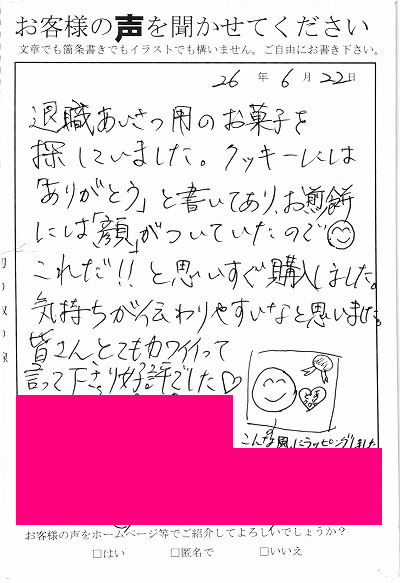 お客様の声を聞かせてください
文章でも箇条書きでもイラストでも構いません。ご自由にお書き下さい。
26年6月22日
退職あいさつ用のお菓子を
探していました。クッキーには
「ありがとう」と書いてあり、お煎餅
には「顔」がついていたので
これだ!!と思いすぐ購入しました。
気持ちが伝わりやすいなと思いました。
皆さん、とてもカワイイって
言って下さり好評でした♡
こんな風にラッピングしました
お客様の声をホームページ等でご紹介してよろしいでしょうか?
□はい □匿名で □いいえ